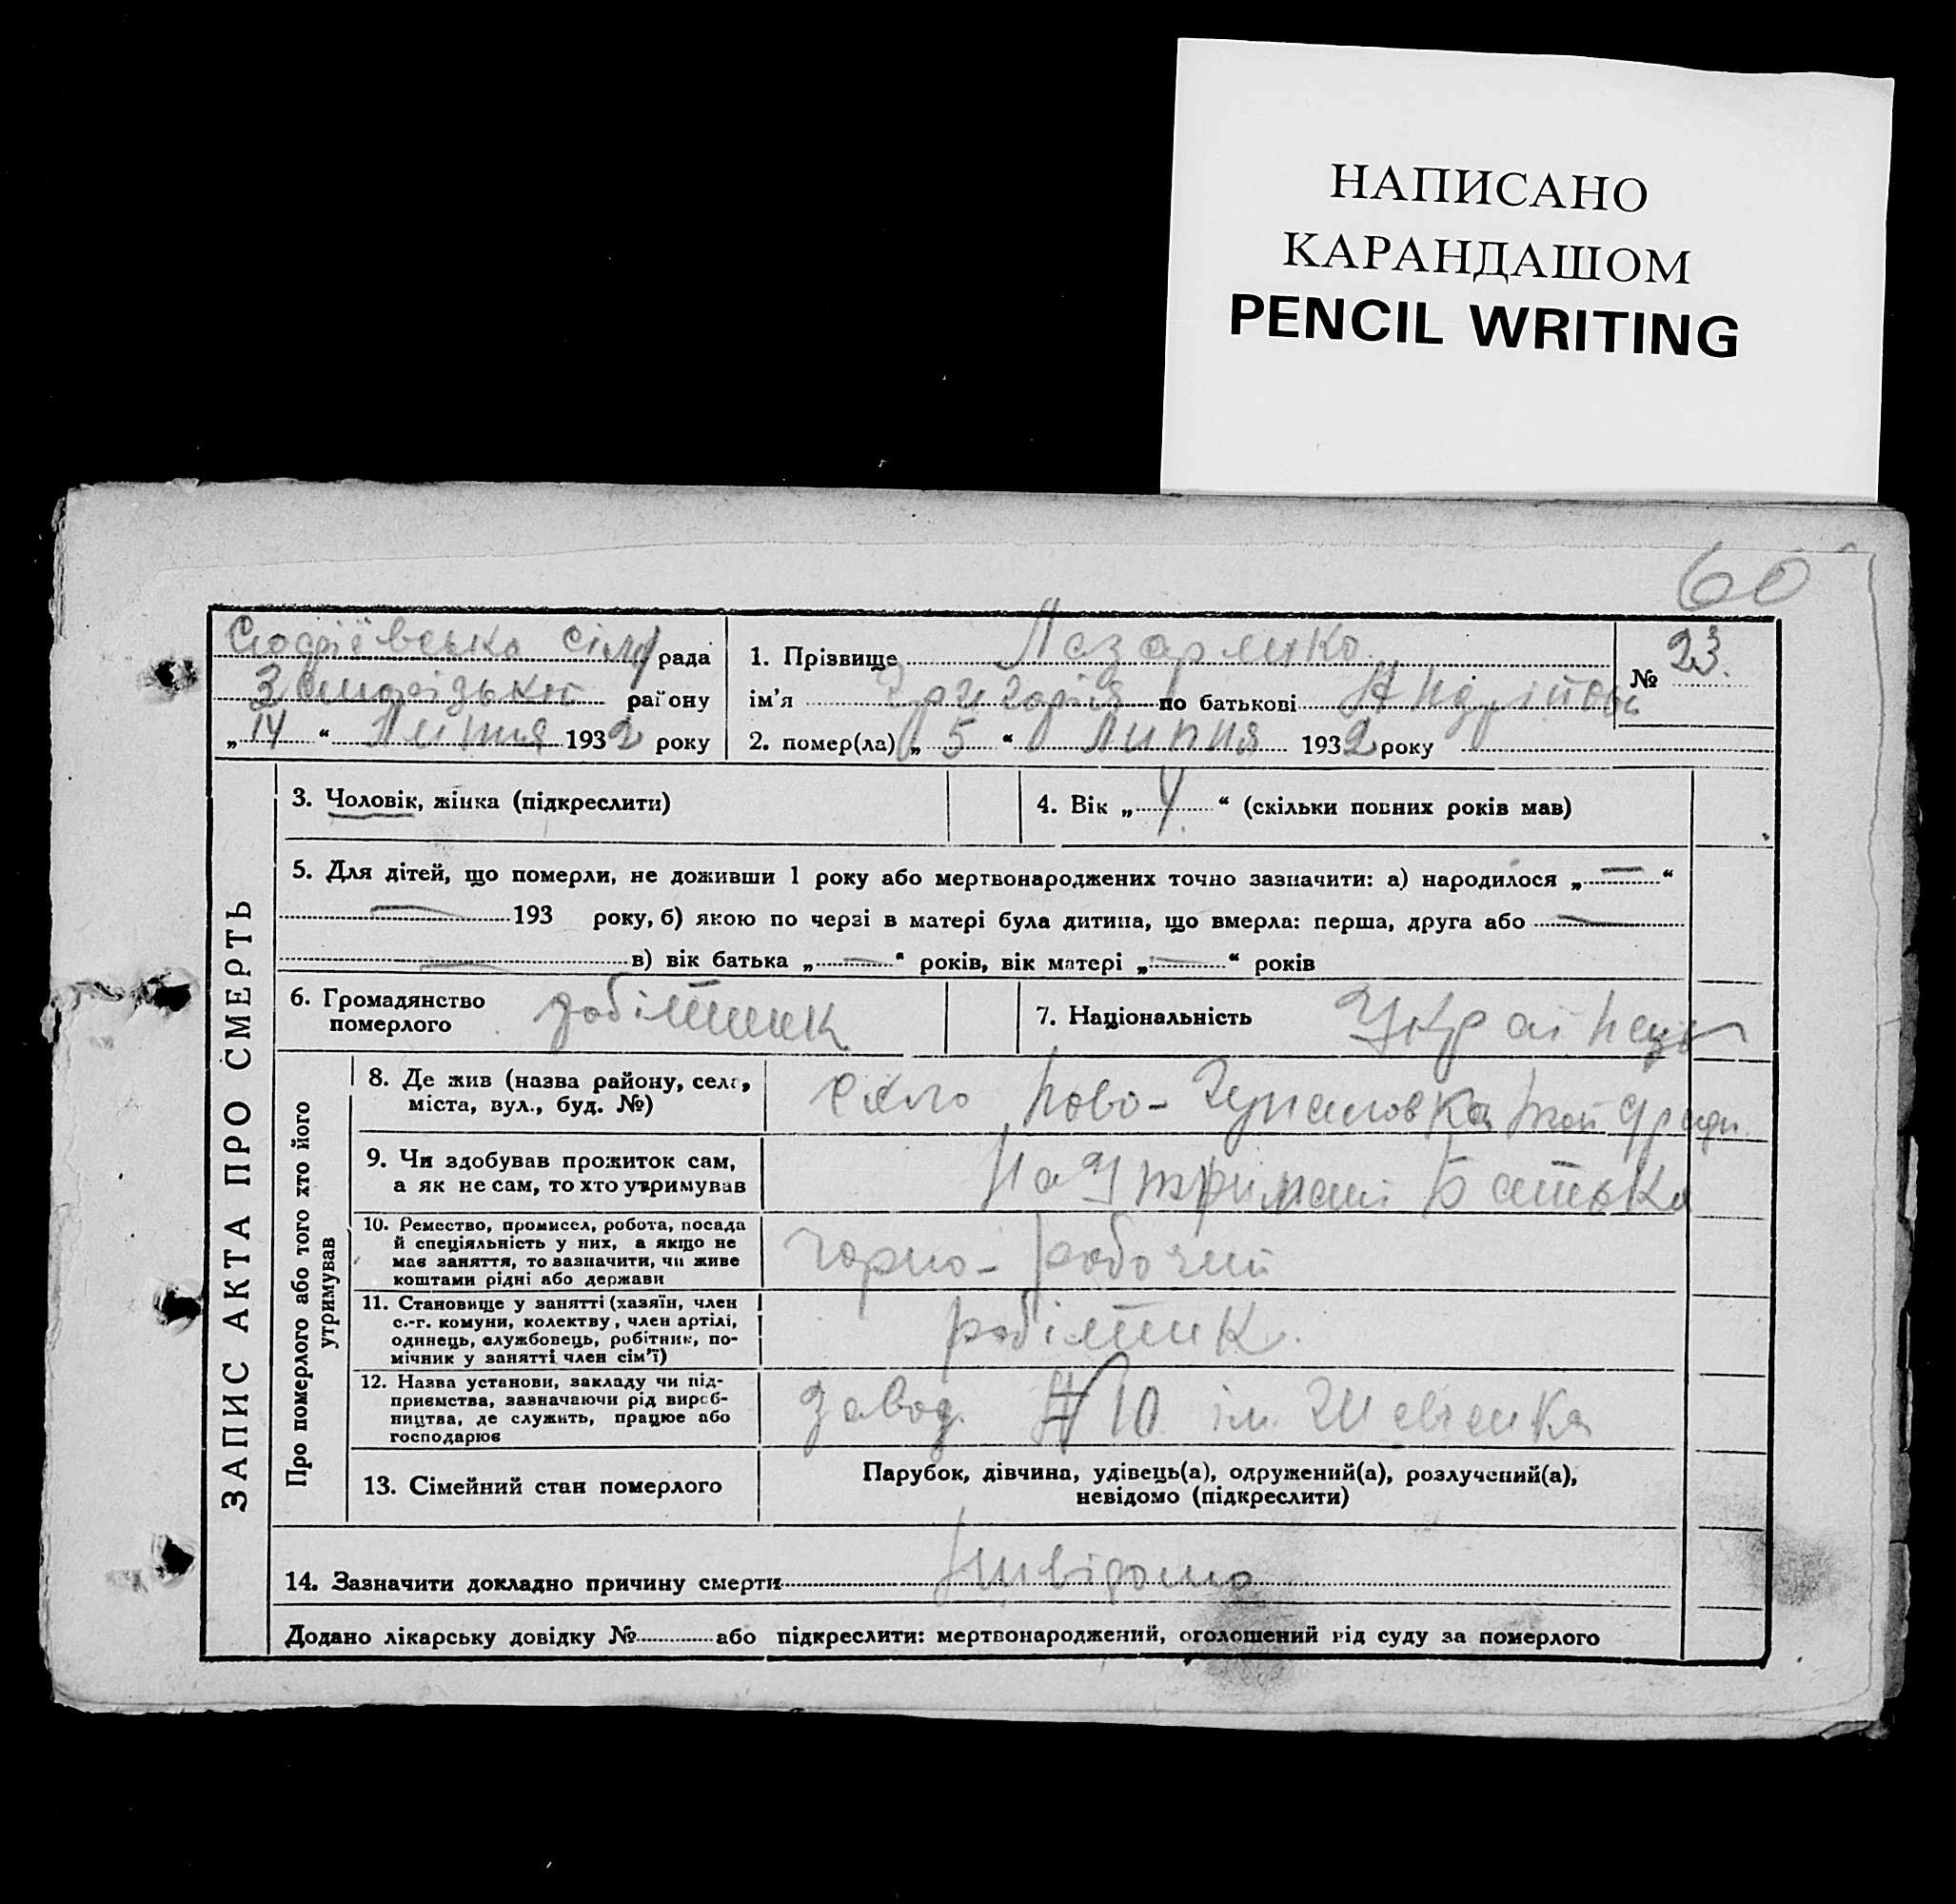 НАПИСАНО
КАРАНДАШОМ
PENCIL WRITING
60
рада
району
„14“ Липня 1932 року
1. Прізвище Лазаренко
ім’я по батькові
2. помер(ла) „5“ Липня 1932 року
№ 23.
ЗАПИС АКТА ПРО СМЕРТЬ
3. Чоловік, жінка (підкреслити)
4. Вік „4“ (скільки повних років мав)
5. Для дітей, що померли, не доживши 1 року або мертвонароджених точно зазначити: а) народилося „—“
— 193 року, б) якою по черзі в матері була дитина, що вмерла: перша, друга або —
— в) вік батька „—“ років, вік матері „—“ років
6. Громадянство
померлого
робітник
7. Національність
Українець
Про померлого або того хто його
утримував
8. Де жив (назва району, села,
міста, вул., буд. №)
село Ново-
9. Чи здобував прожиток сам,
а як не сам, то хто утримував
На Утримані Батька
10. Ремество, промисел, робота, посада
й спеціяльність у них, а якщо не
має заняття, то зазначити, чи живе
коштами рідні або держави
горно-робочий
11. Становище у занятті (хазяїн, член
с.-г. комуни, колектву, член артілі,
одинець, службовець, робітник, по-
мічник у занятті член сім’ї)
робітник.
12. Назва установи, закладу чи під-
приємства, зазначаючи рід вироб-
ництва, де служить, працює або
господарює
завод № 10 ім. Шевченка
13. Сімейний стан померлого
Парубок, дівчина, удівець(а), одружений(а), розлучений(а),
невідомо (підкреслити)
14. Зазначити докладно причину смерти
Невідомо
Додано лікарську довідку № або підкреслити: мертвонароджений, оголошений від суду за померлого